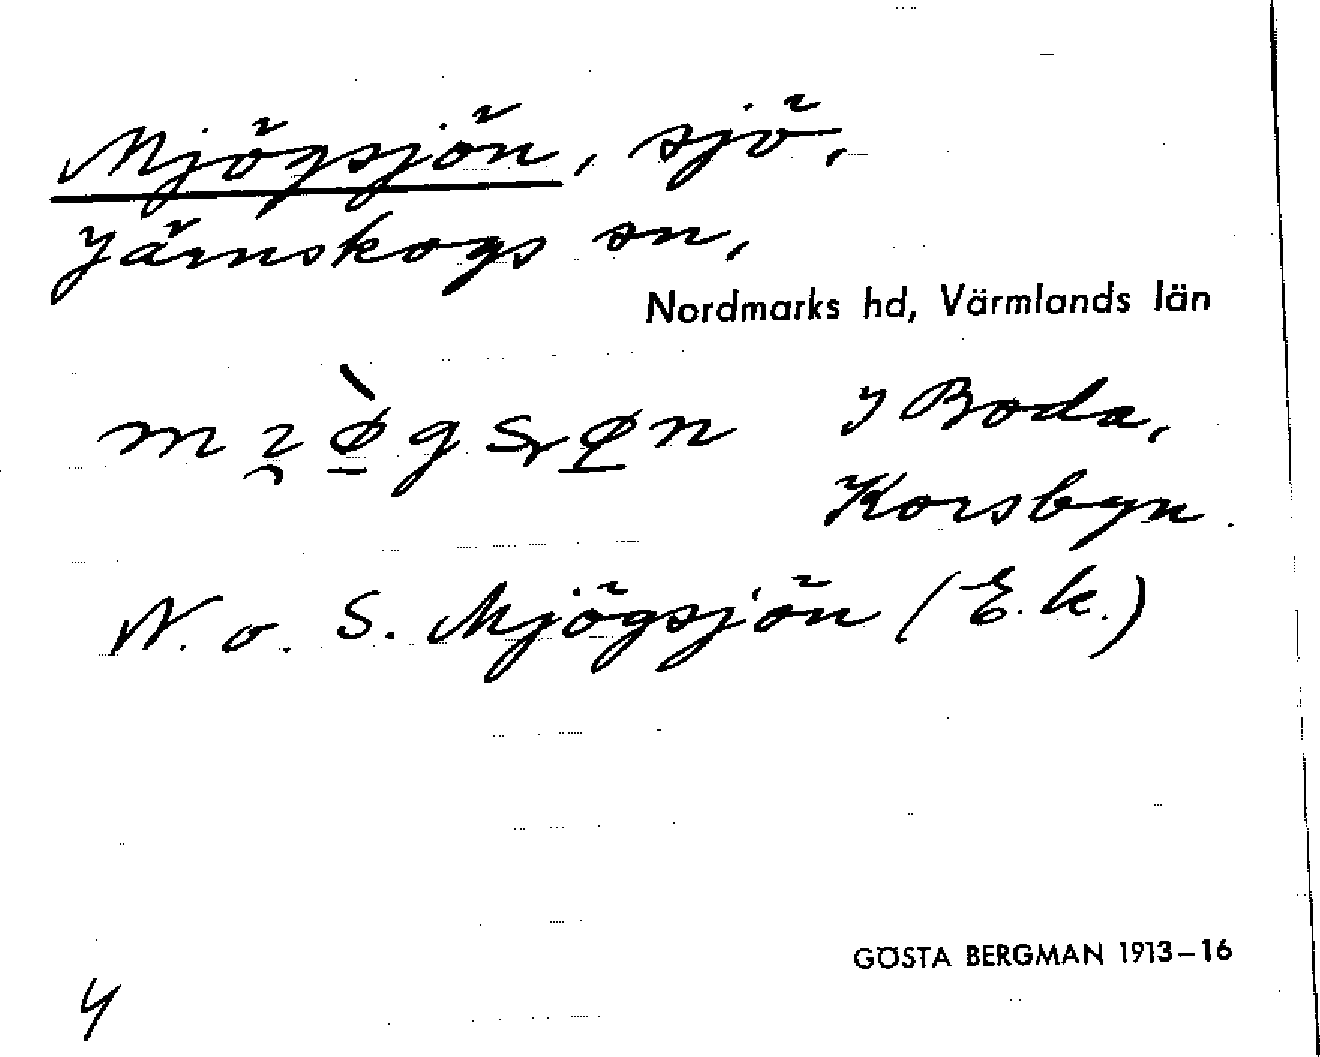 Mjögsjön, sjö,
Järnskogs sn,
Nordmarks hd, Värmlands län
I Boda,
Korsbyn.
N. o. S. Mjögsjön (E.k.)
GÖSTA BERGMAN 1913–16